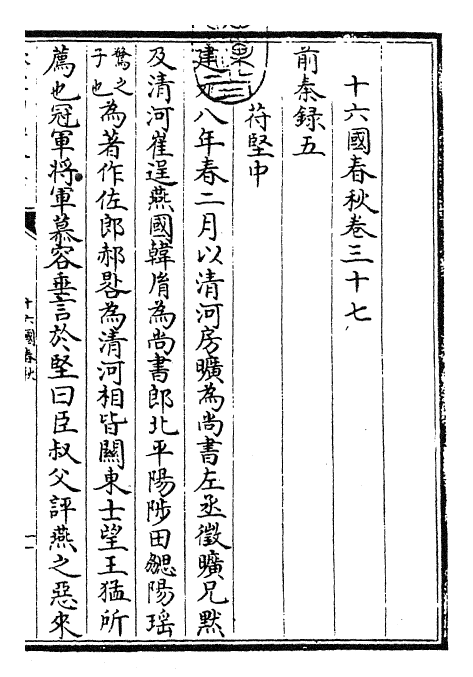 十六國春秋卷三十七
前秦録五
苻堅中
建元八年春二月以清河房曠為尚書左丞徵曠兄黙
及清河崔逞燕國韓胤為尚書郎北平陽陟田勰陽瑶
為著作佐郎郝畧為清河相皆關東士望王猛所
驚之
子也
薦也冠軍將軍慕容垂言於堅曰臣叔父評燕之惡來
十六國春秋
一